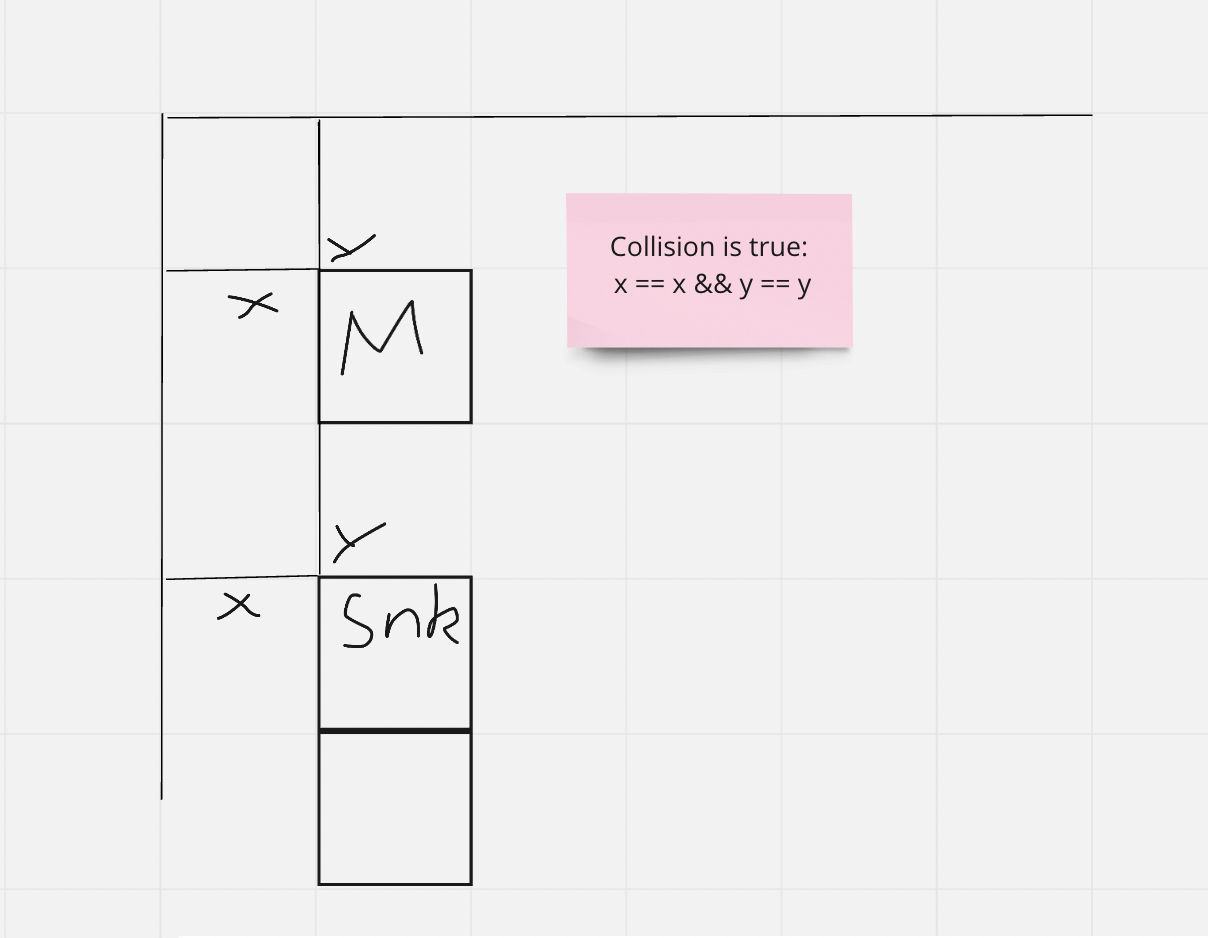 Y
X
M
Collision is true:
x == x && y == y
Y
X
Snk